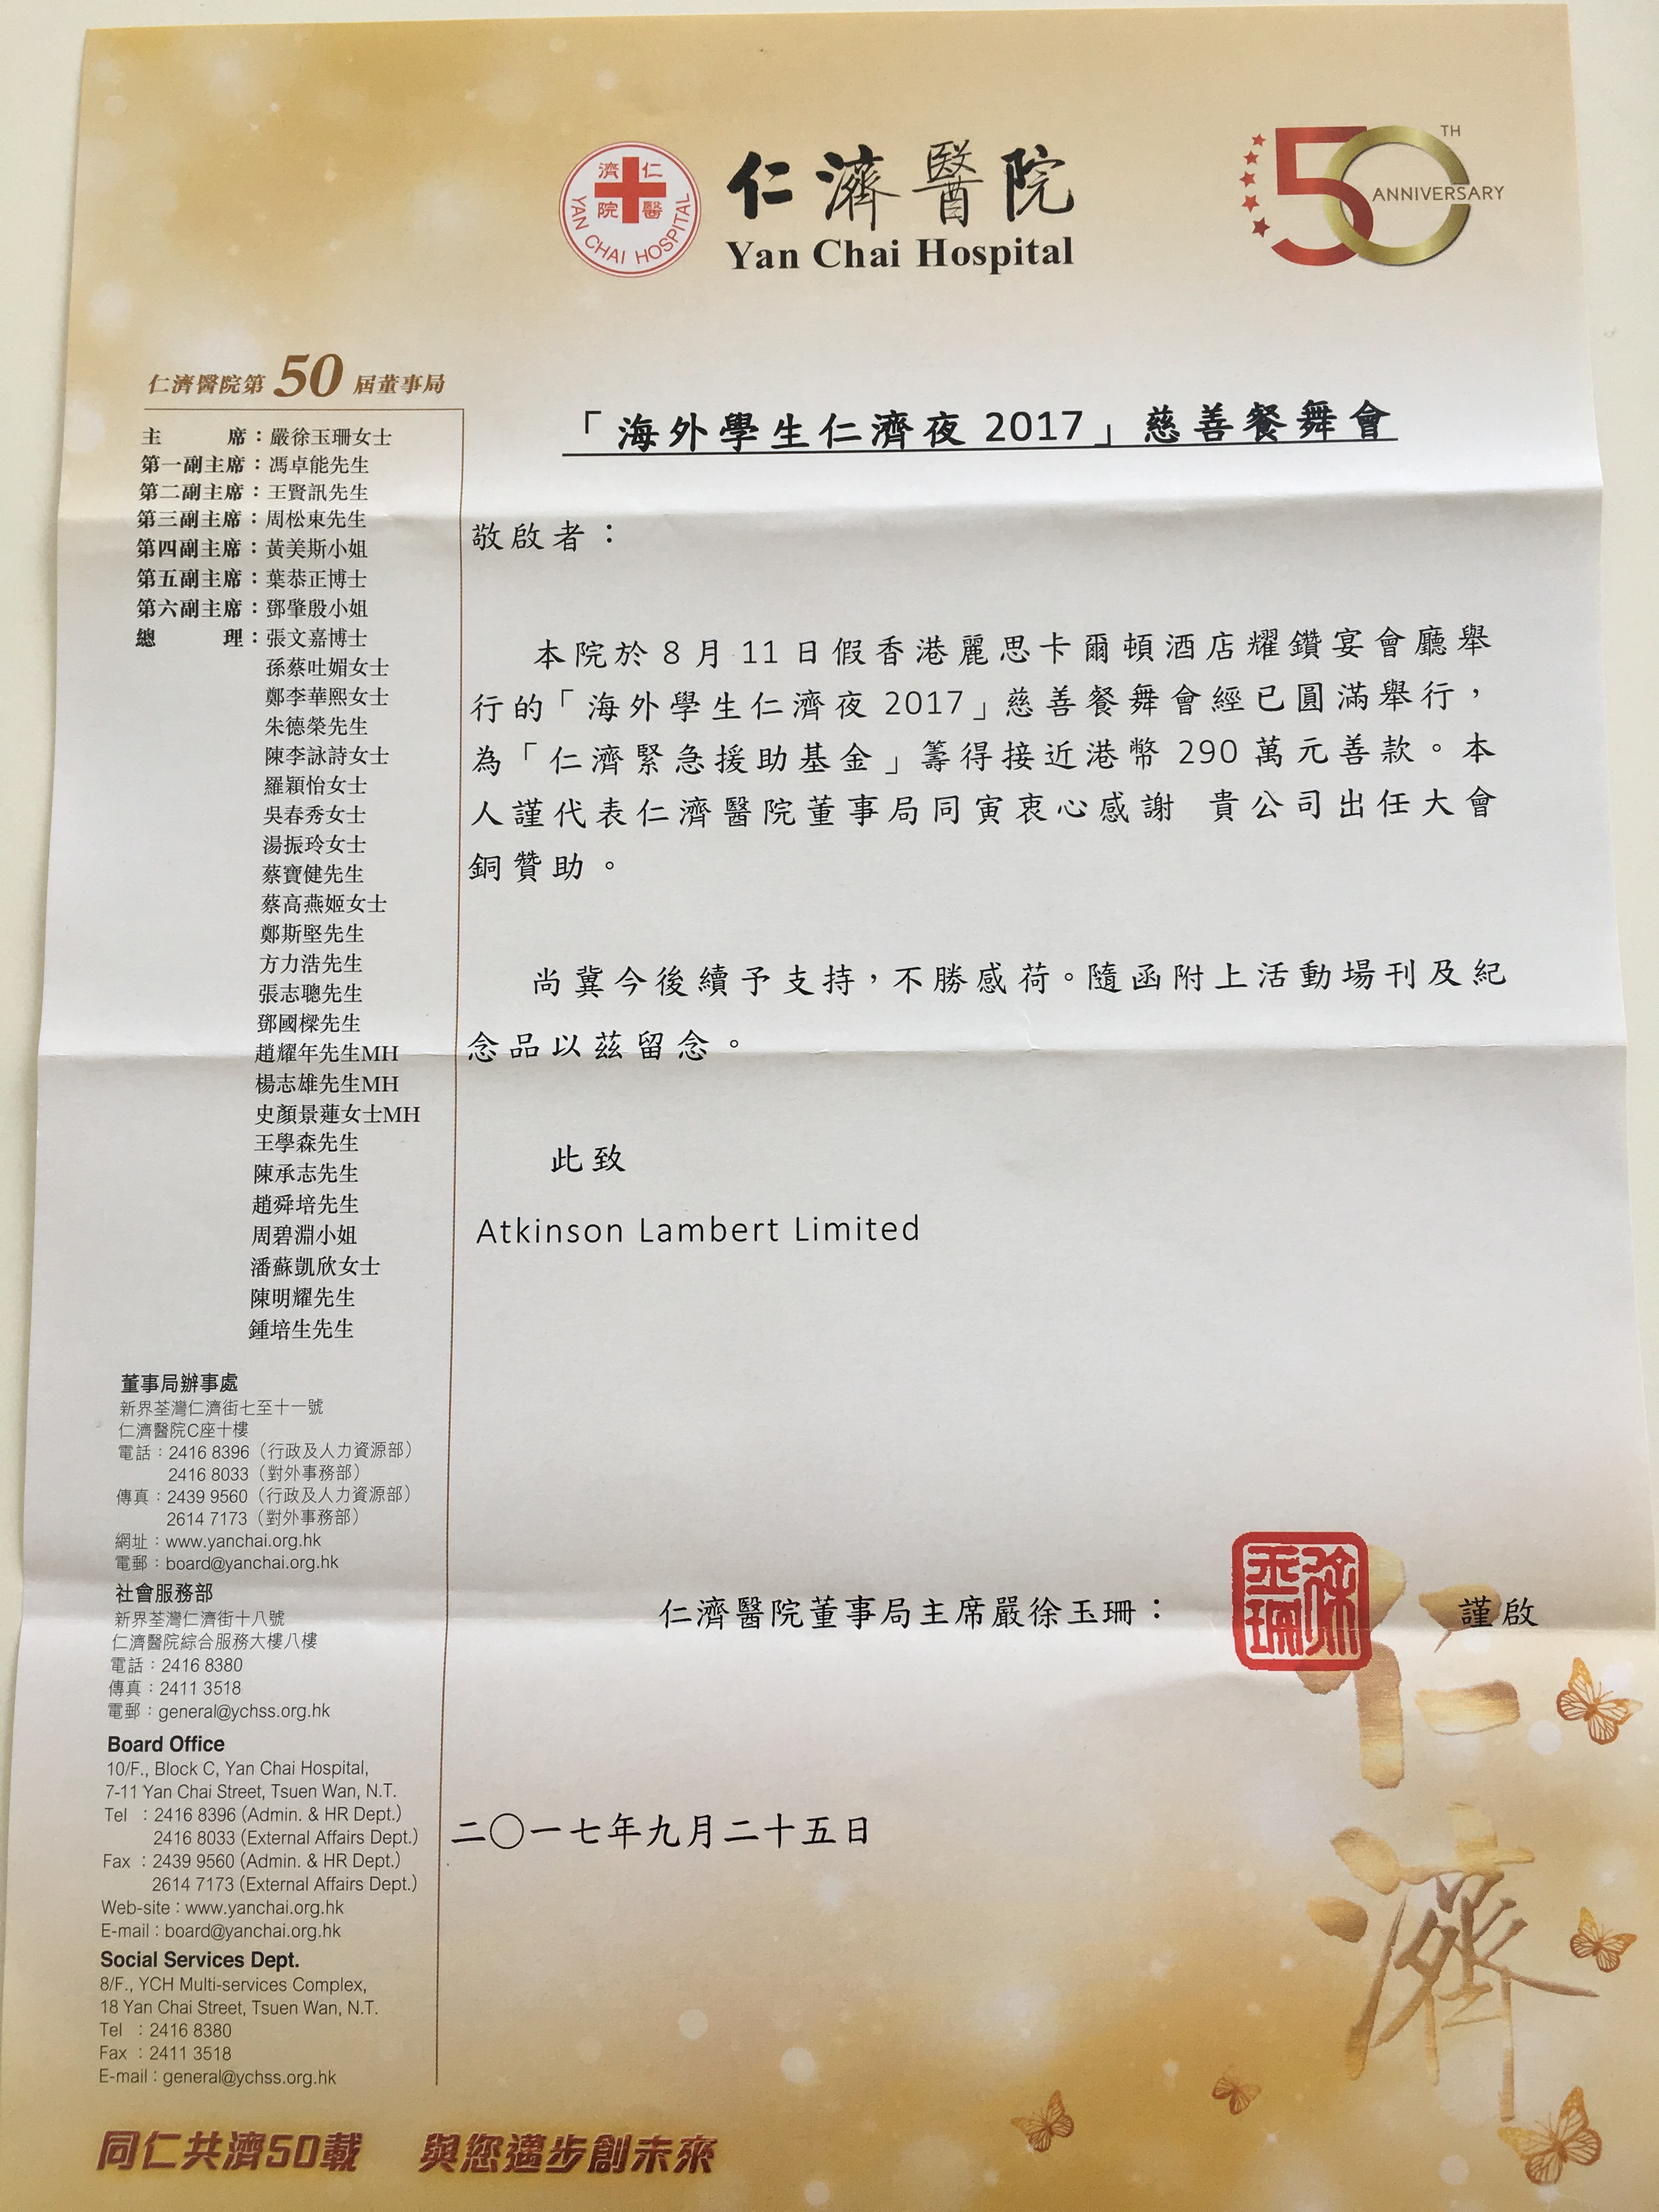 濟仁
院醫
YAN CHAI HOSPITAL
仁濟醫院
Yan Chai Hospital
50TH
ANNIVERSARY
仁濟醫院第50屆董事局
主席：嚴徐玉珊女士
第一副主席：馮卓能先生
第二副主席：王賢訊先生
第三副主席：周松東先生
第四副主席：黃美斯小姐
第五副主席：葉恭正博士
第六副主席：鄧肇殷小姐
總理：張文嘉博士
孫蔡吐媚女士
鄭李華熙女士
朱德榮先生
陳李詠詩女士
羅穎怡女士
吳春秀女士
湯振玲女士
蔡寶健先生
蔡高燕姬女士
鄭斯堅先生
方力浩先生
張志聰先生
鄧國樑先生
趙耀年先生MH
楊志雄先生MH
史顏景蓮女士MH
王學森先生
陳承志先生
趙舜培先生
周碧淵小姐
潘蘇凱欣女士
陳明耀先生
鍾培生先生
董事局辦事處
新界荃灣仁濟街七至十一號
仁濟醫院C座十樓
電話：2416 8396（行政及人力資源部）
2416 8033（對外事務部）
傳真：2439 9560（行政及人力資源部）
2614 7173（對外事務部）
網址：www.yanchai.org.hk
電郵：board@yanchai.org.hk
社會服務部
新界荃灣仁濟街十八號
仁濟醫院綜合服務大樓八樓
電話：2416 8380
傳真：2411 3518
電郵：general@ychss.org.hk
Board Office
10/F., Block C, Yan Chai Hospital,
7-11 Yan Chai Street, Tsuen Wan, N.T.
Tel : 2416 8396 (Admin. & HR Dept.)
2416 8033 (External Affairs Dept.)
Fax : 2439 9560 (Admin. & HR Dept.)
2614 7173 (External Affairs Dept.)
Web-site : www.yanchai.org.hk
E-mail : board@yanchai.org.hk
Social Services Dept.
8/F., YCH Multi-services Complex,
18 Yan Chai Street, Tsuen Wan, N.T.
Tel : 2416 8380
Fax : 2411 3518
E-mail : general@ychss.org.hk
「海外學生仁濟夜 2017」慈善餐舞會
敬啟者：
本院於 8 月 11 日假香港麗思卡爾頓酒店耀鑽宴會廳舉
行的「海外學生仁濟夜 2017」慈善餐舞會經已圓滿舉行，
為「仁濟緊急援助基金」籌得接近港幣 290 萬元善款。本
人謹代表仁濟醫院董事局同寅衷心感謝 貴公司出任大會
銅贊助。
尚冀今後續予支持，不勝感荷。隨函附上活動場刊及紀
念品以茲留念。
此致
Atkinson Lambert Limited
仁濟醫院董事局主席嚴徐玉珊： 謹啟
徐玉珊
二〇一七年九月二十五日
仁濟
同仁共濟50載 與您邁步創未來